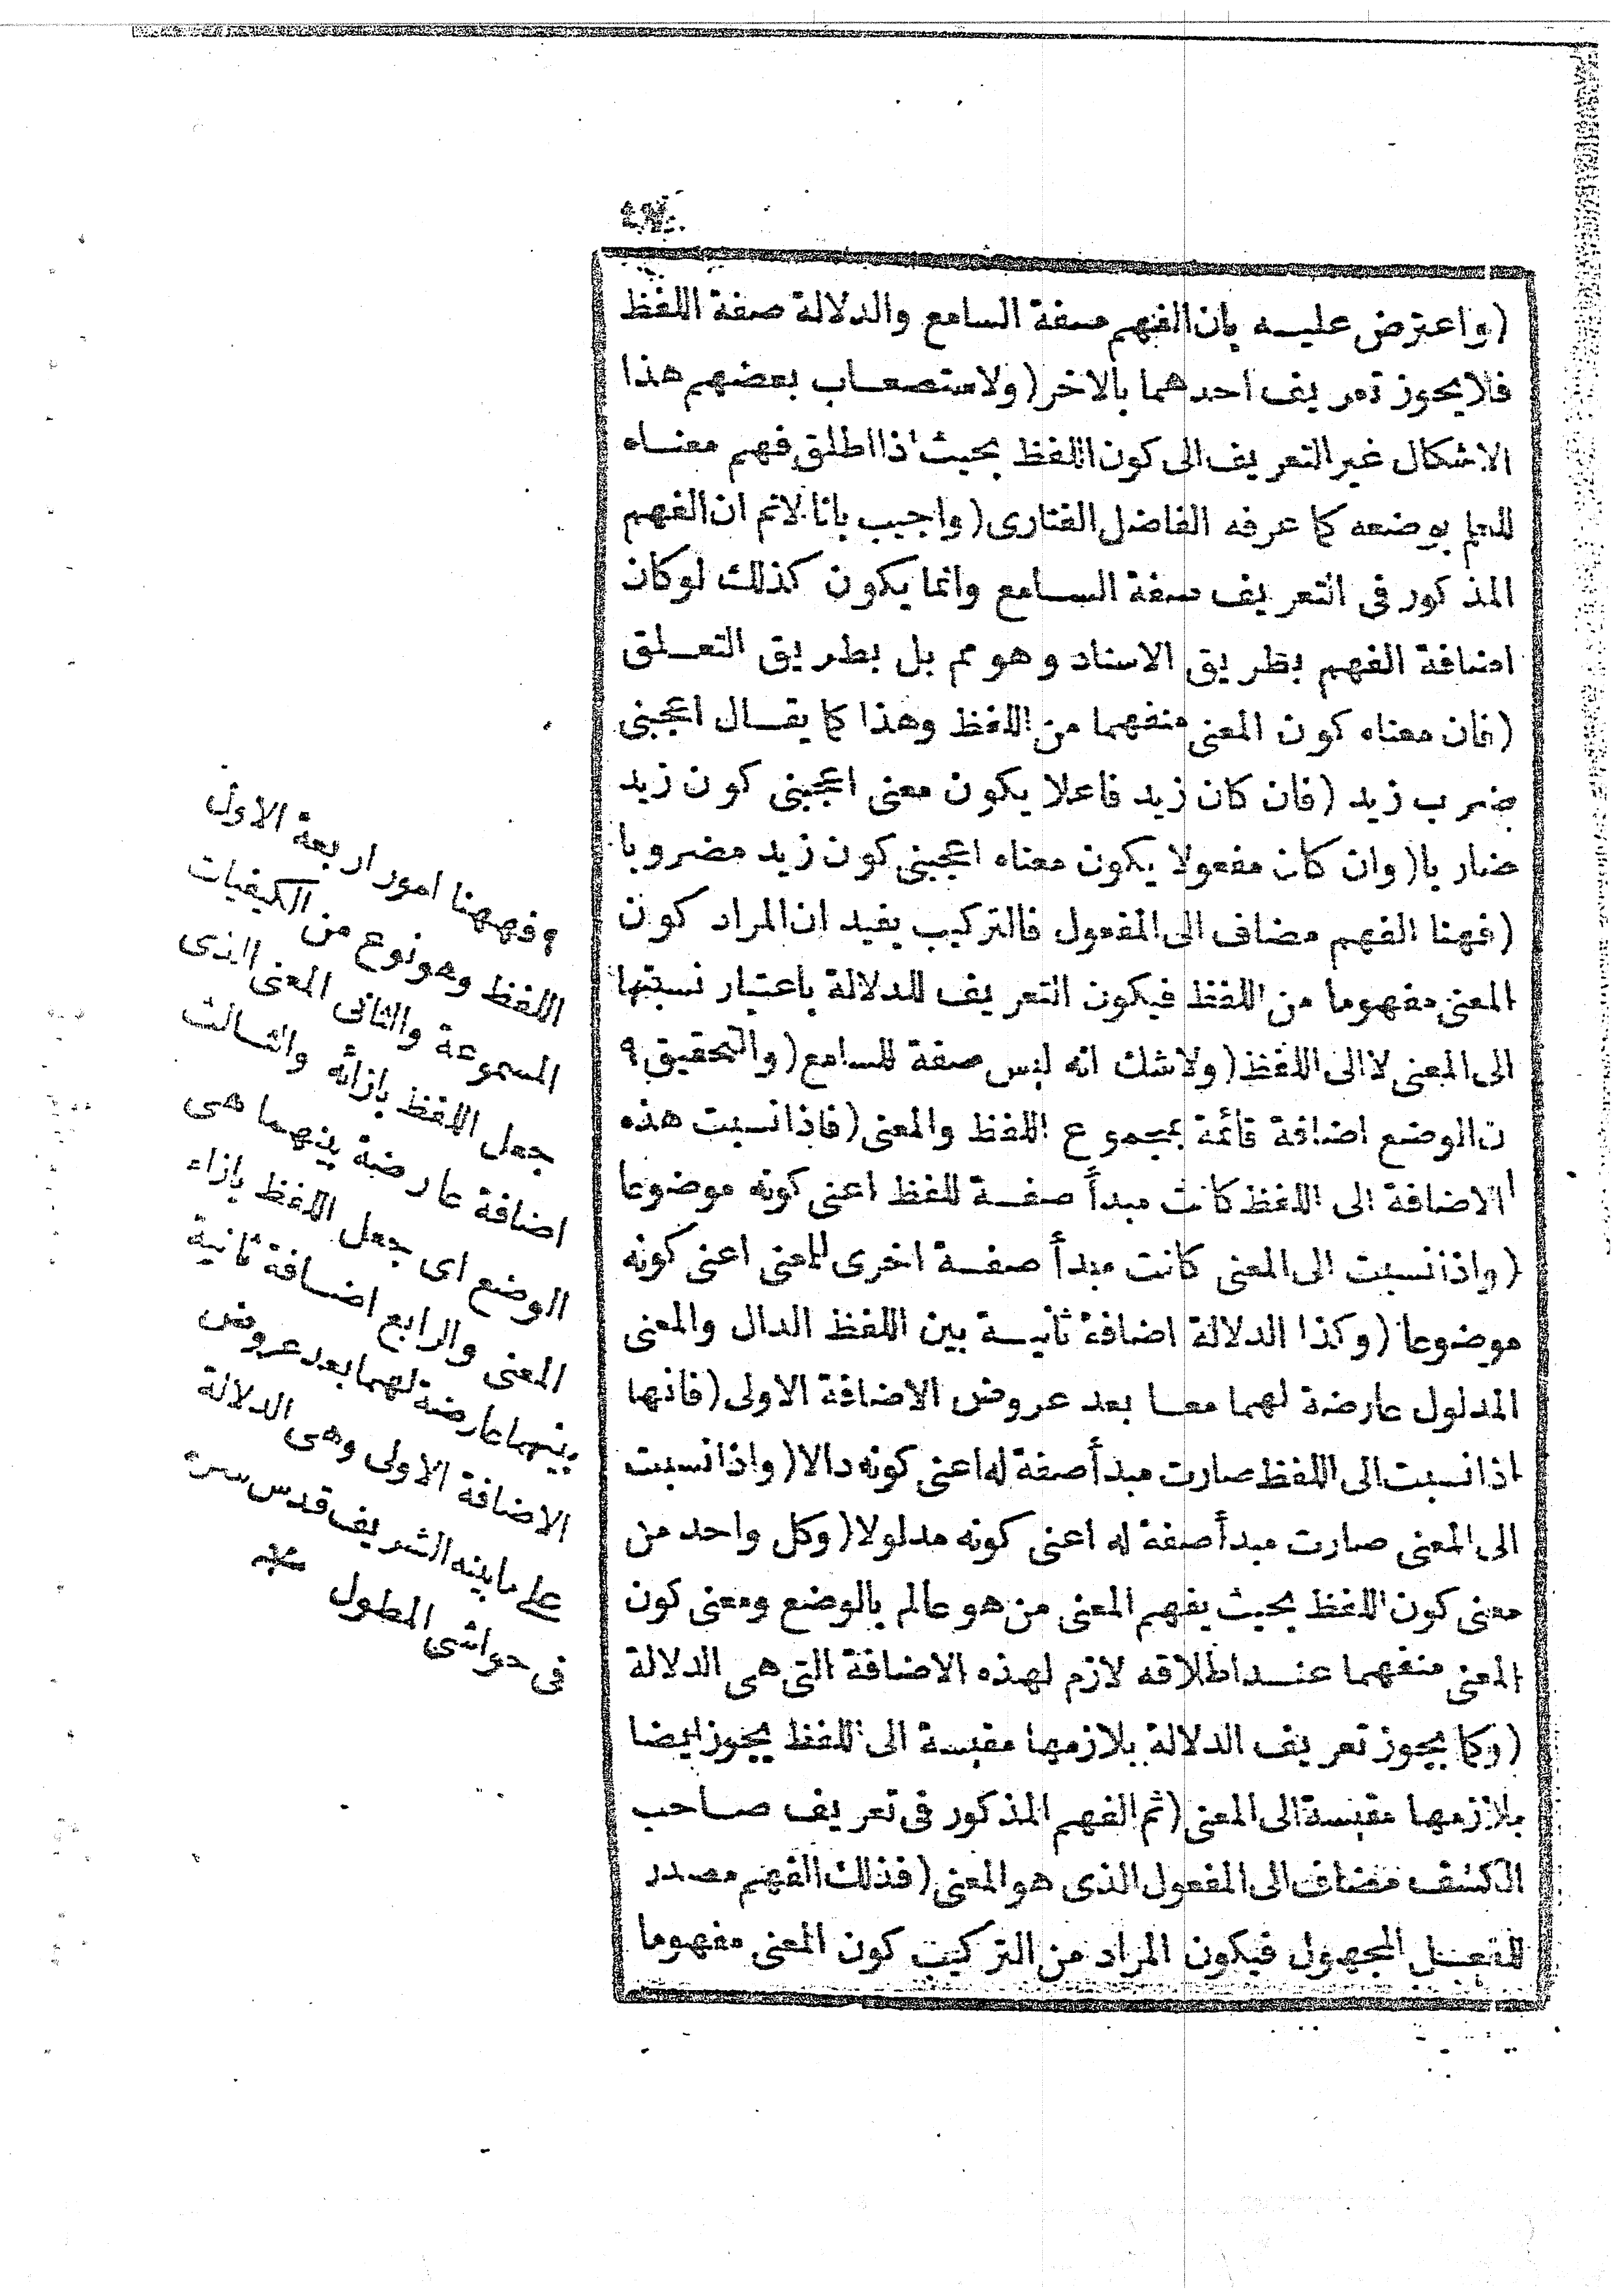 (واعترض عليه بان الفهم صفة السامع والدلالة صفة اللفظ
فلا يجوز تعريف احدهما بالاخر (ولاستصعاب بعضهم هذا
الاشكال غير التعريف الى كون اللفظ بحيث اذا اطلق فهم معناه
للعلم بوضعه كما عرفه الفاضل الفنارى (واجيب بانا لانم ان الفهم
المذكور فى التعريف صفة السامع وانما يكون كذلك لوكان
اضافة الفهم بطريق الاسناد وهو مم بل بطريق التعلق
(فان معناه كون المعنى منفهما من اللفظ وهذا كما يقال اعجبنى
ضرب زيد (فان كان زيد فاعلا يكون معنى اعجبنى كون زيد
ضاربا (وان كان مفعولا يكون معناه اعجبنى كون زيد مضروبا
(فهنا الفهم مضاف الى المفعول فالتركيب يفيد ان المراد كون
المعنى مفهوما من اللفظ فيكون التعريف للدلالة باعتبار نسبتها
الى المعنى لا الى اللفظ (ولاشك انه ليس صفة للسامع (والتحقيق ٩
ن الوضع اضافة قائمة بمجموع اللفظ والمعنى (فاذا نسبت هذه
الاضافة الى اللفظ كانت مبدأ صفة للفظ اعنى كونه موضوعا
(واذا نسبت الى المعنى كانت مبدأ صفة اخرى للمعنى اعنى كونه
موضوعا (وكذا الدلالة اضافة ثانية بين اللفظ الدال والمعنى
المدلول عارضة لهما معا بعد عروض الاضافة الاولى (فانها
اذا نسبت الى اللفظ صارت مبدأ صفة له اعنى كونه دالا (واذا نسبت
الى المعنى صارت مبدأ صفة له اعنى كونه مدلولا (وكل واحد من
معنى كون اللفظ بحيث يفهم المعنى من هو عالم بالوضع ومعنى كون
المعنى منفهما عند اطلاقه لازم لهذه الاضافة التى هى الدلالة
(وكما يجوز تعريف الدلالة بلازمها مقيسة الى اللفظ يجوز ايضا
بلازمها مقيسة الى المعنى (ثم الفهم المذكور فى تعريف صاحب
الكشف مضاف الى المفعول الذى هو المعنى (فذلك الفهم مصدر
للفعل المجهول فيكون المراد من التركيب كون المعنى مفهوما
٩ فههنا امور اربعة الاول
اللفظ وهو نوع من الكيفيات
المسموعة والثانى المعنى الذى
جعل اللفظ بازائه والثالث
اضافة عارضة بينهما هى
الوضع اى جعل اللفظ بازاء
المعنى والرابع اضافة ثانية
بينهما عارضة لهما بعد عروض
الاضافة الاولى وهى الدلالة
على ما بينه الشريف قدس سره
فى حواشى المطول